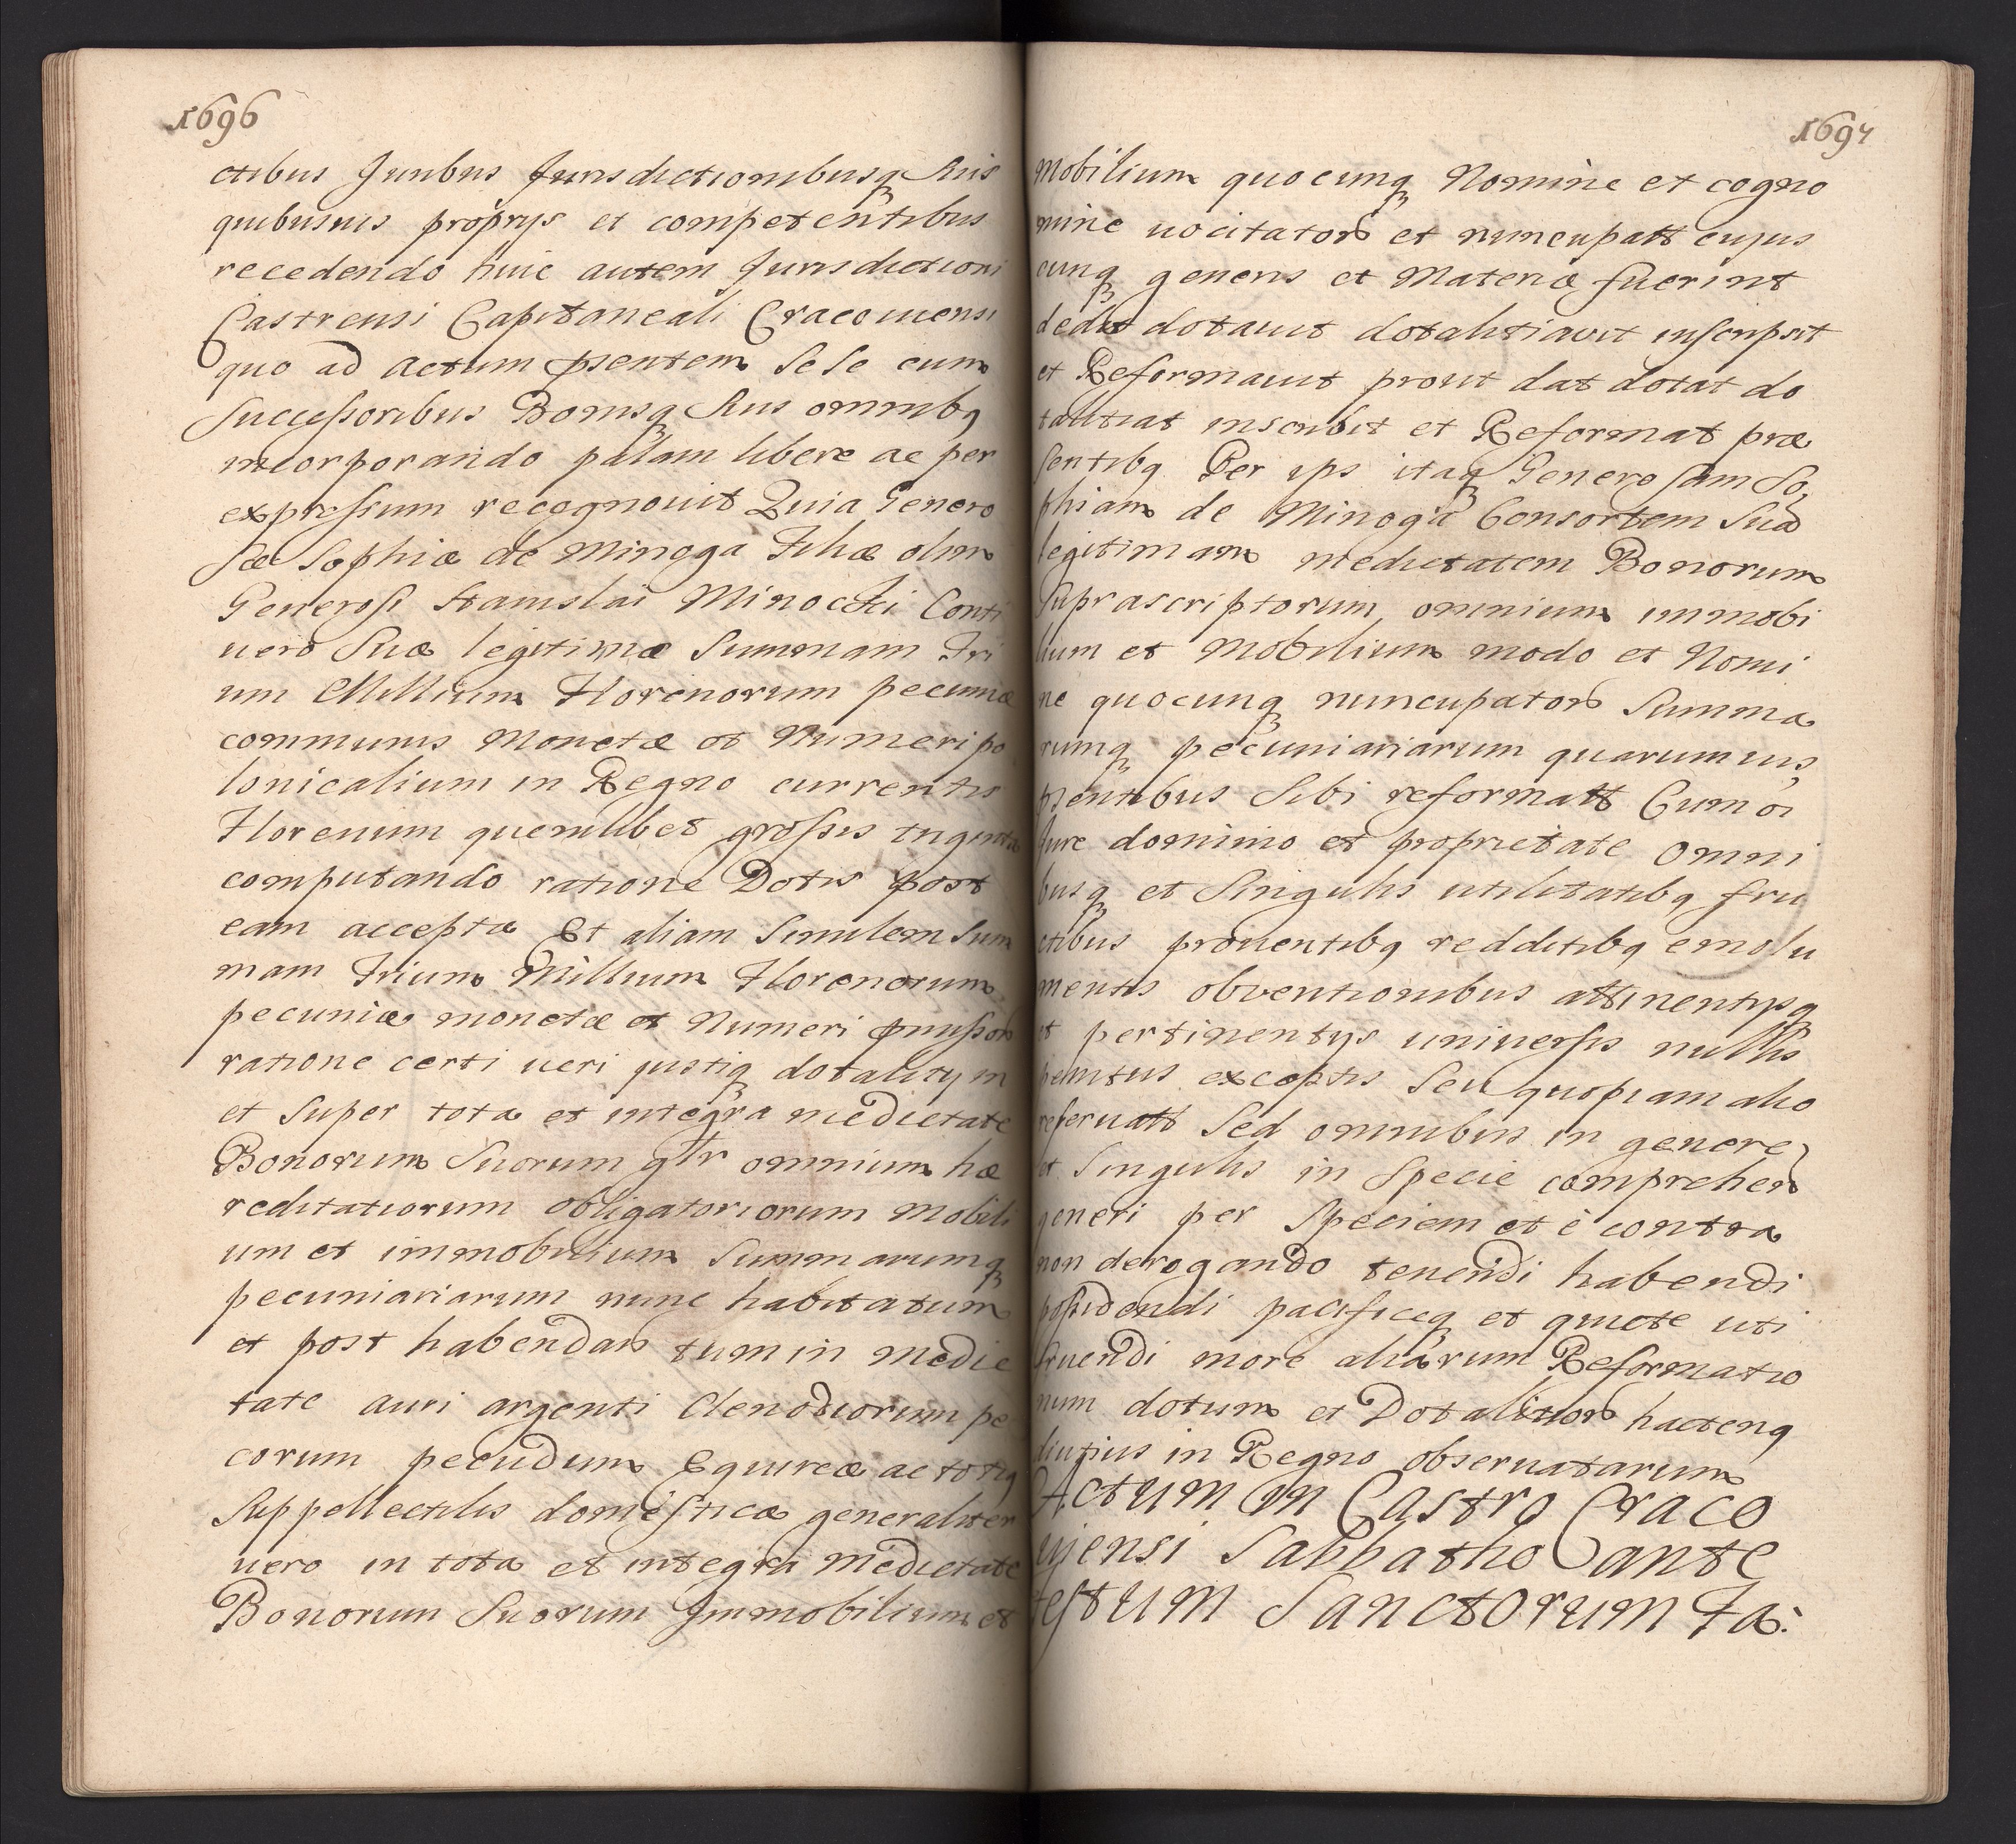 1696
ctibus Juribus Jurisdictionibusq Suis
quibusuis proprys et competentibus
recedendo huic autem Jurisdictioni
Castrensi Capitaneali Cracouiensi
quo ad actum psentem Sese cum
Successoribus Bonisq Suis omnibq
incorporando palam libere ac per
expressum recognouit Quia Genero
sæ Sophiæ de Minoga Filiæ olim
Generosi Stanislai Minocki Conti
uero Suæ legitimæ Summam Tri
um Millium Florenorum pecuniæ
communis Monetæ et Numeri po
lonicalium in Regno currentis
Florenum quemlibet grossis triginta
computando ratione Dotis post
eam accepta Et aliam Similem Sum
mam Trium Millium Florenorum
pecuniæ monetæ et Numeri pmissor
ratione certi ueri justiq dotality in
et Super tota et integra medietate
Bonorum Suorum gltr omnium hæ
reditatiorum obligatoriorum Mobili
um et immobilium Summarumq
pecuniariarum nunc habitatum
et post habendar tum in Medie
tate auri argenti Clenodiorum pe
corum pecudum Equireæ ac totiq
Suppellectilis domesticæ generaliter
uero in tota et integra Medietate
Bonorum Suorum Immobilium et
1697
Mobilium quocunq Nomine et cogno
mine uocitator et nuncupatt cujus
cunq generis et Materiæ fuerint
dedit dotauit dotalitiauit inscripsit
et Reformauit prout dat dotat do
talitiat inscribit et Reformat præ
sentibq Per ips itaq Generosam So
phiam de Minoga Consortem Sua
legitimam medietatem Bonorum
Suprascriptorum omnium immobi
lium et Mobilium modo et Nomi
ne quocunq nuncupator Summa
rumq pecuniariarum quarumuis
psentibus Sibi reformatt Cum oi
Jure dominio et proprietate Omni
busq et Singulis utilitatibq fru
ctibus prouentibq redditibq emolu
mentis obventionibus attinentysq
et pertinentys uniuersis nullis
penitus exceptis Seu quopiam alio
reseruatt Sed omnibus in genere
et Singulis in Specie comprehen
generi per Speciem et è contra
non derogando tenendi habendi
possidendi pacificeq et quiete uti
fruendi more aliarum Reformatio
num dotum et Dotalitior hactenq
diutius in Regno obseruatarum
Actum in Castro Craco
uiensi Sabbatho ante
festum Sanctorum Fa: